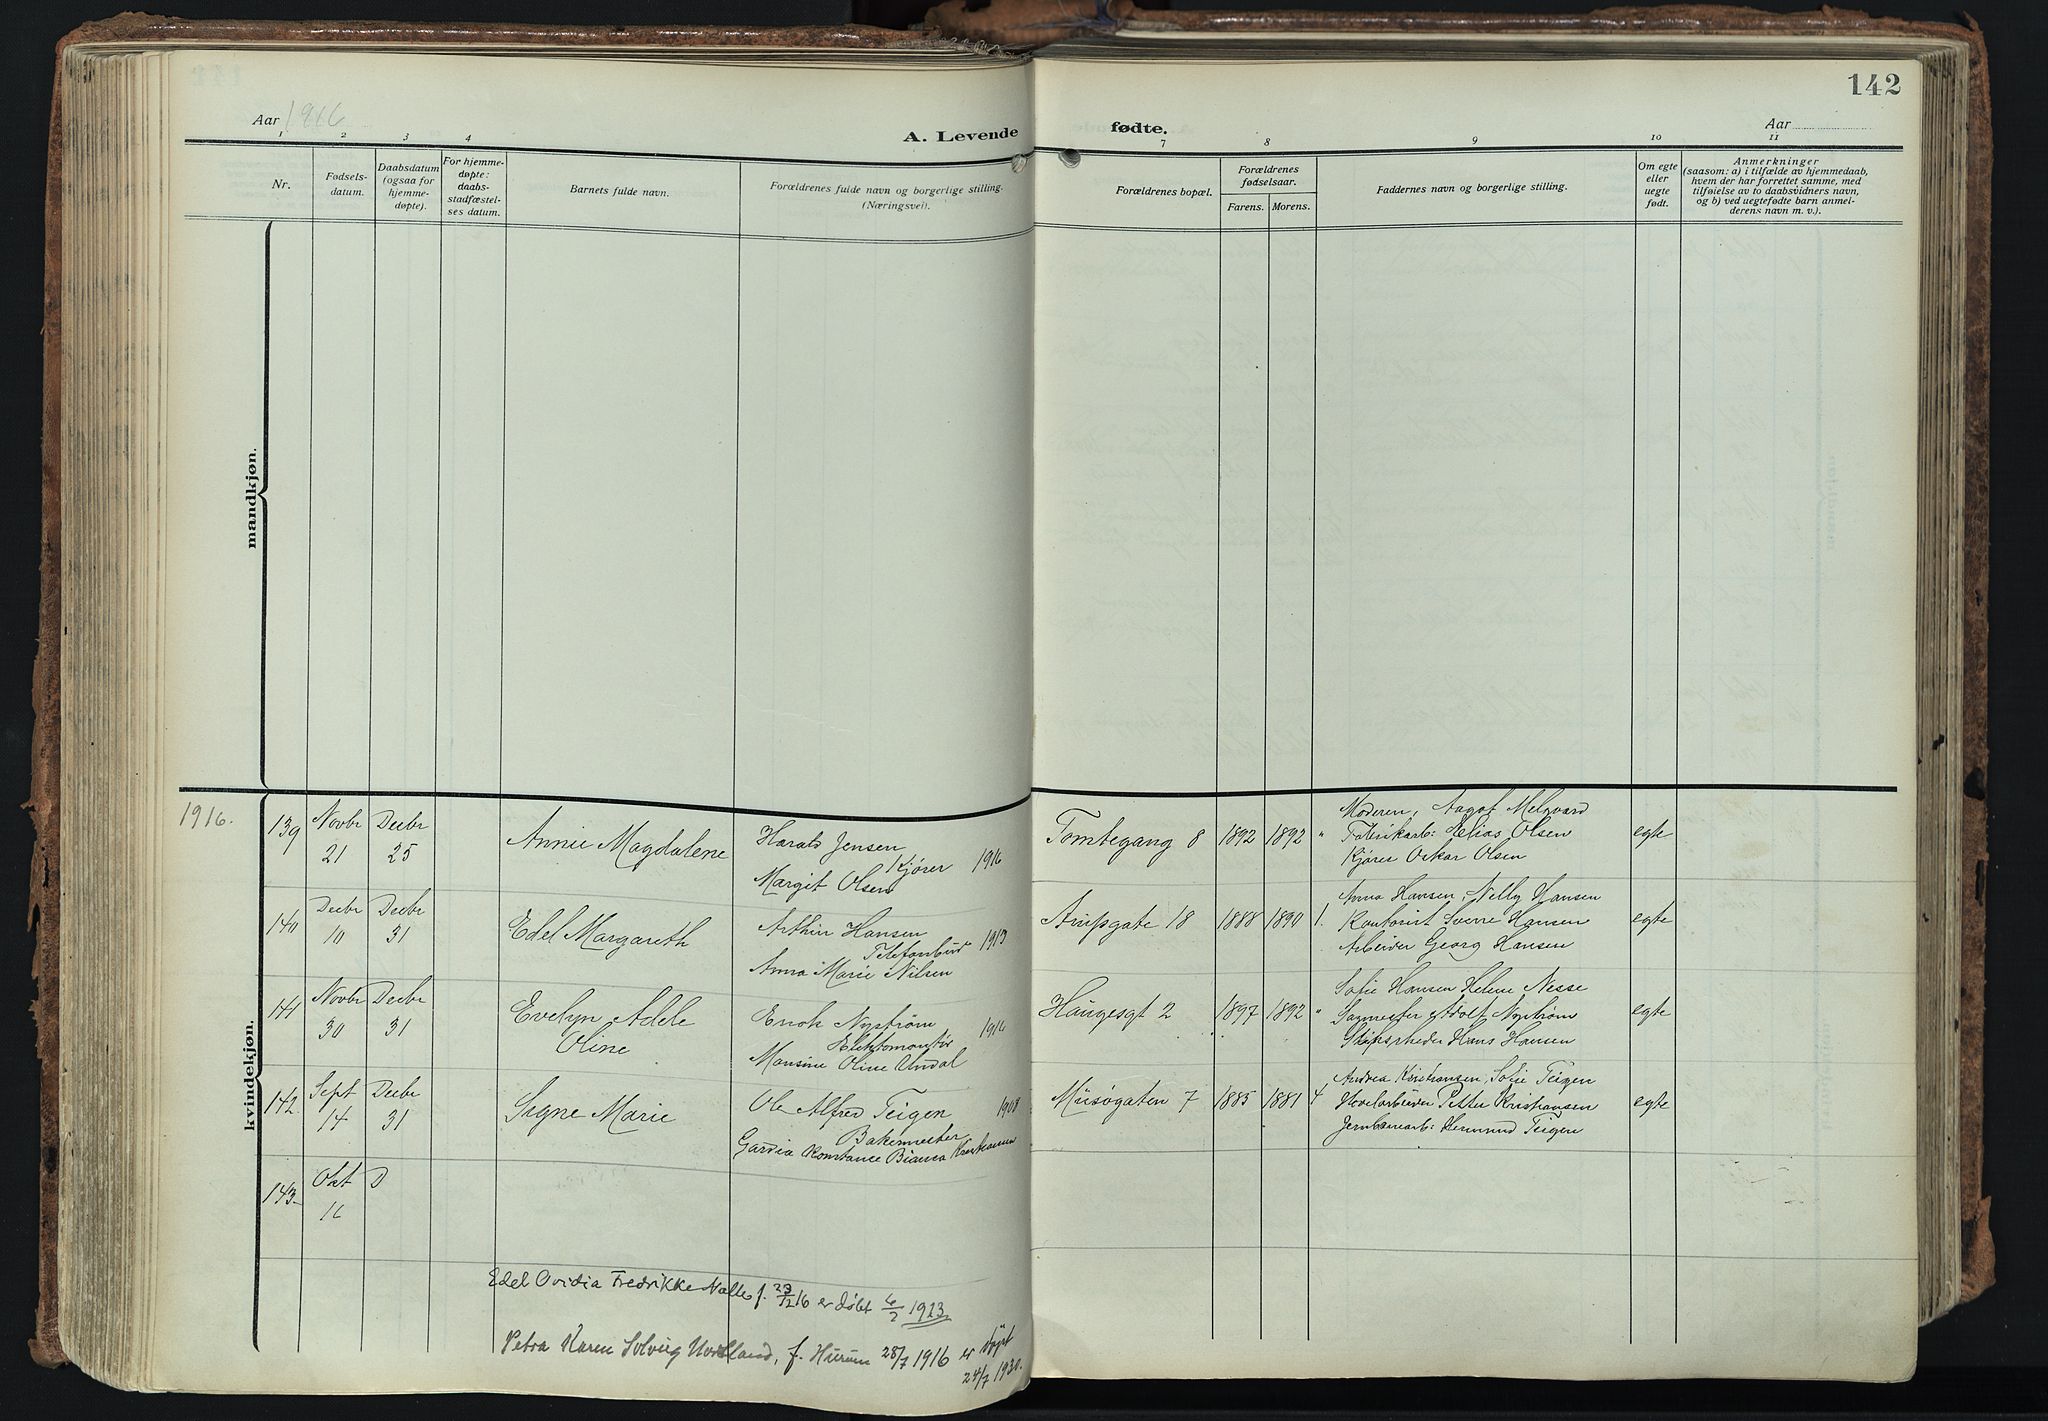 142
Aar 1916
A. Levende fødte.
Aar
1 2 3 4 7 8 9 10 11
Nr.
Fødsels-
datum.
Daabsdatum
(ogsaa for
hjemme-
døpte).
For hjemme-
døpte:
daabs-
stadfæstel-
ses datum.
Barnets fulde navn.
Forældrenes fulde navn og borgerlige stilling.
(Næringsvei).
Forældrenes bopæl.
Forældrenes
fødselsaar.
Farens. Morens.
Faddernes navn og borgerlige stilling.
Om egte
eller
uegte
født.
Anmerkninger
(saasom: a) i tilfælde av hjemmedaab,
hvem der har forrettet samme, med
tilføielse av to daabsvidners navn,
og b) ved uegtefødte barn anmel-
derens navn m. v.).
mandkjøn.
kvindekjøn.
1916.
139
Novbr
21
Decbr
25
Annie Magdalene
Harald Jensen
Kjører 1916
Margit Olsen
Tomtegang 8
1892 1892 "
Moderen, Aagot Melgaard
Fabrikarb: Elias Olsen
Kjører Oskar Olsen
egte
140
Decbr
10
Decbr
31
Edel Margareth
Arthur Hansen
1913
Anna Marie Nilsen
18
1888 1890 1.
Anna Hansen, Nelly Hansen
Kontorist Sverre Hansen
Arbeider Georg Hansen
egte
141
Novbr
30
Decbr
31
Evelyn Adele
Oline
Enok Nystrøm
Elektromontør 1916
Mansine Oline Undal
Haugesgt 2
1897 1892 "
Sofie Hansen Helene Nesse
Adolf Nystrøm
Skibsrheder Hans Hansen
egte
142.
Sept
14
Decbr
31
Signe Marie
Ole Alfred Teigen 1908
Bakermester
Konstance Bianca
Musøgaten 7
1885 1881 4
Andrea Kristiansen, Sofie Teigen
Petter Kristiansen
Jernbanearb: Hermund Teigen
egte
143.
Okt
16
D
Edel Ovidia Fredrikke Nalle f. 23/12 16 er døbt 6/2 1923
Petra Karen Solveig f. Hurum 28/7 1916 er døpt
24/7 1930.